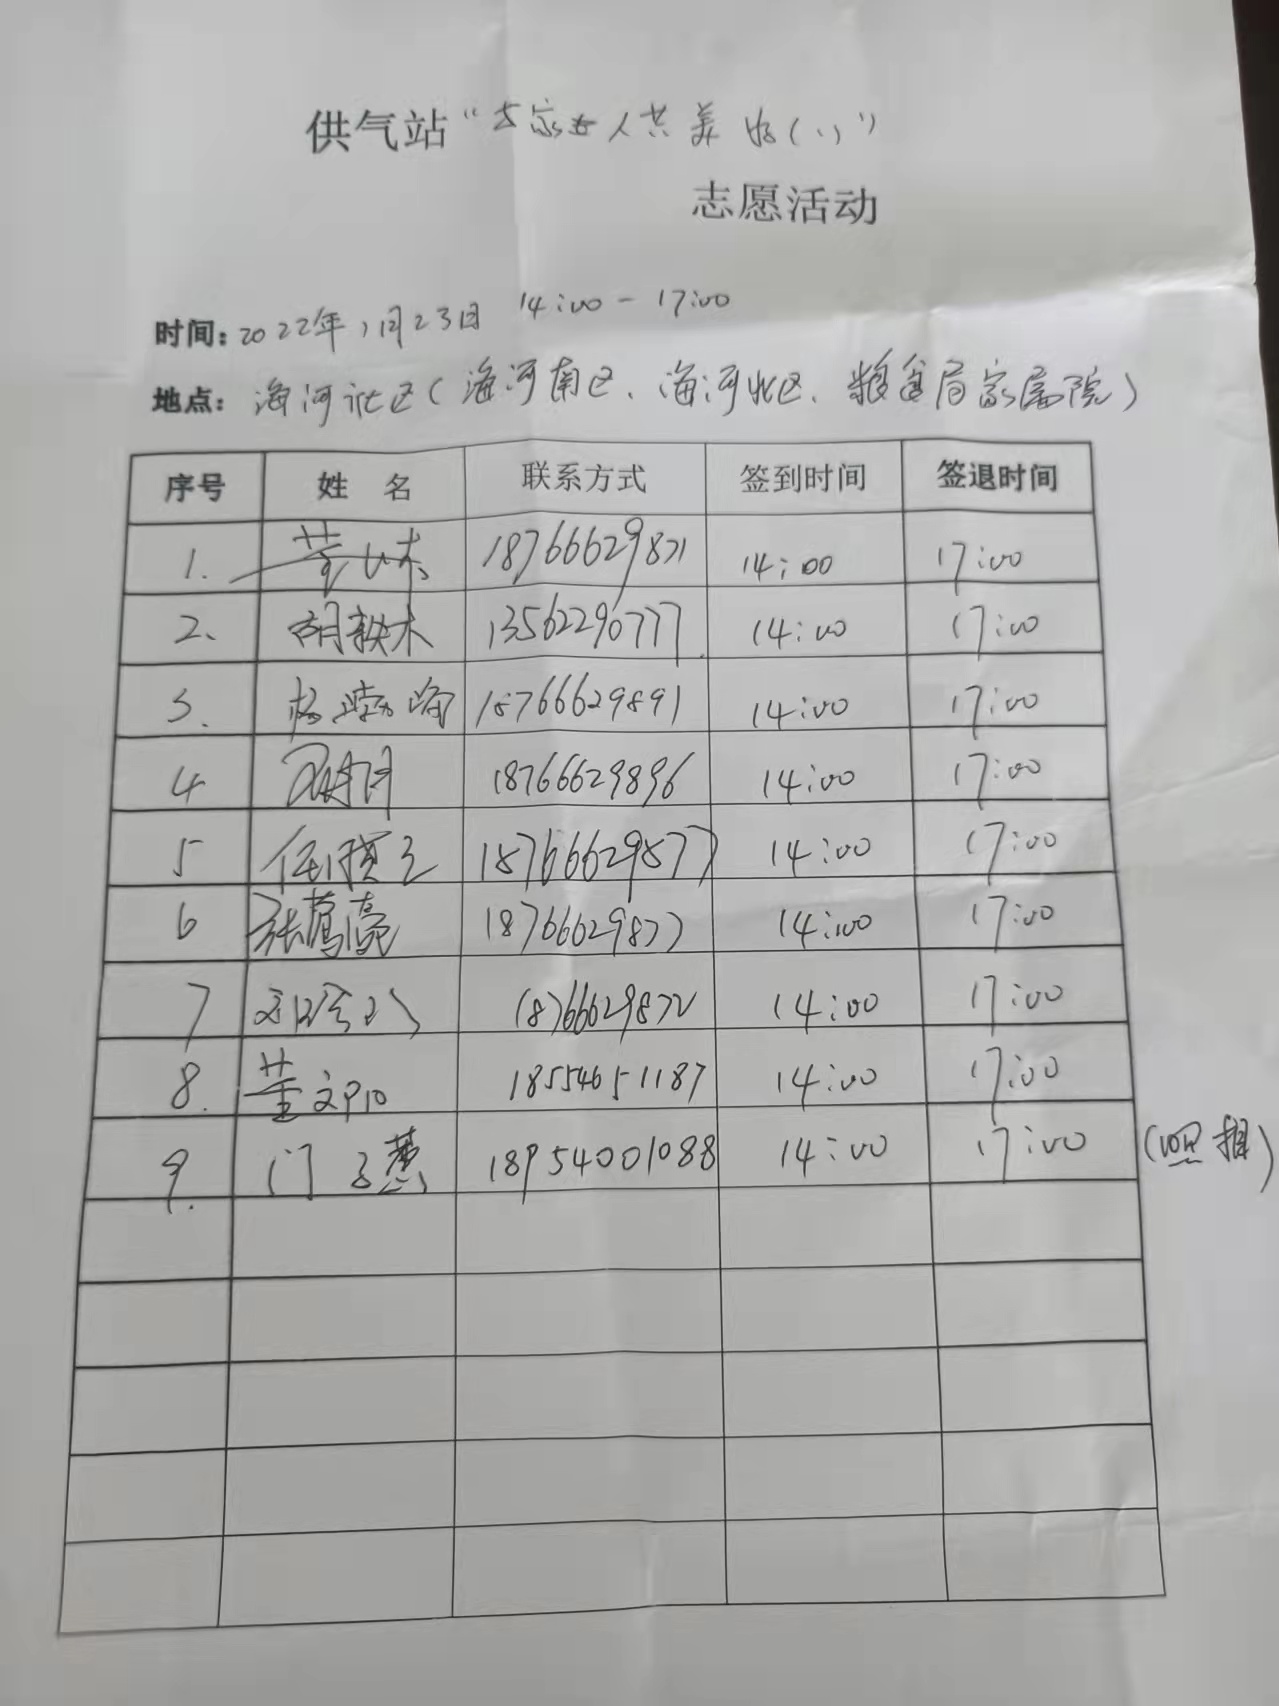 供气站“去家无人共美好（八）”
志愿活动
时间：2022年1月23日 14:00-17:00
地点：海河社区（海河南区、海河北区、粮食局家属院）
序号 姓名 联系方式 签到时间 签退时间
1. 18766629871 14:00 17:00
2、 胡轶木 13562290777 14:00 17:00
3、 杨 18766629891 14:00 17:00
4 18766629896 14:00 17:00
5 任 18766629877 14:00 17:00
6 张 18766629877 14:00 17:00
7 18766629872 14:00 17:00
8. 董文 18554651187 14:00 17:00
9. 门 18954001088 14:00 17:00 （照相）